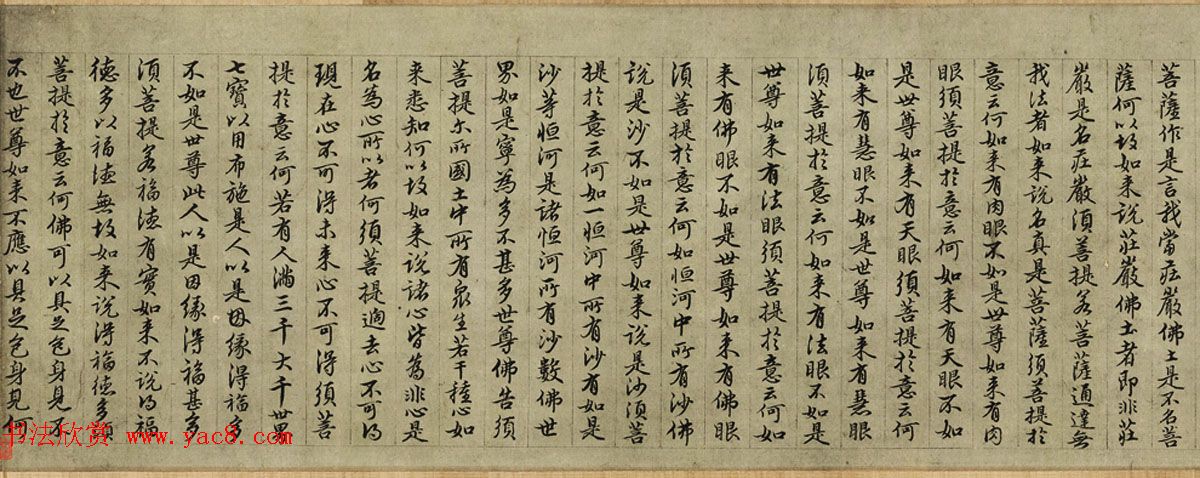 菩薩作是言我當莊嚴佛土是不名菩
薩何以故如来說莊嚴佛土者即非莊
嚴是名莊嚴須菩提若菩薩通達無
我法者如来說名真是菩薩須菩提於
意云何如来有肉眼不如是世尊如来有肉
眼須菩提於意云何如来有天眼不如
是世尊如来有天眼須菩提於意云何
如来有慧眼不如是世尊如来有慧眼
須菩提於意云何如来有法眼不如是
世尊如来有法眼須菩提於意云何如
来有佛眼不如是世尊如来有佛眼
須菩提於意云何如恒河中所有沙佛
說是沙不如是世尊如来說是沙須菩
提於意云何如一恒河中所有沙有如是
沙等恒河是諸恒河所有沙數佛世
界如是寧為多不甚多世尊佛告須
菩提尔所國土中所有衆生若干種心如
来悉知何以故如来說諸心皆為非心是
名為心所以者何須菩提過去心不可得
現在心不可得未来心不可得須菩
提於意云何若有人滿三千大千世界
七寶以用布施是人以是因緣得福多
不如是世尊此人以是因緣得福甚多
須菩提若福德有實如来不說得福
德多以福德無故如来說得福德多須
菩提於意云何佛可以具足色身見不
不也世尊如来不應以具足色身見何
书法欣赏 www.yac8.com